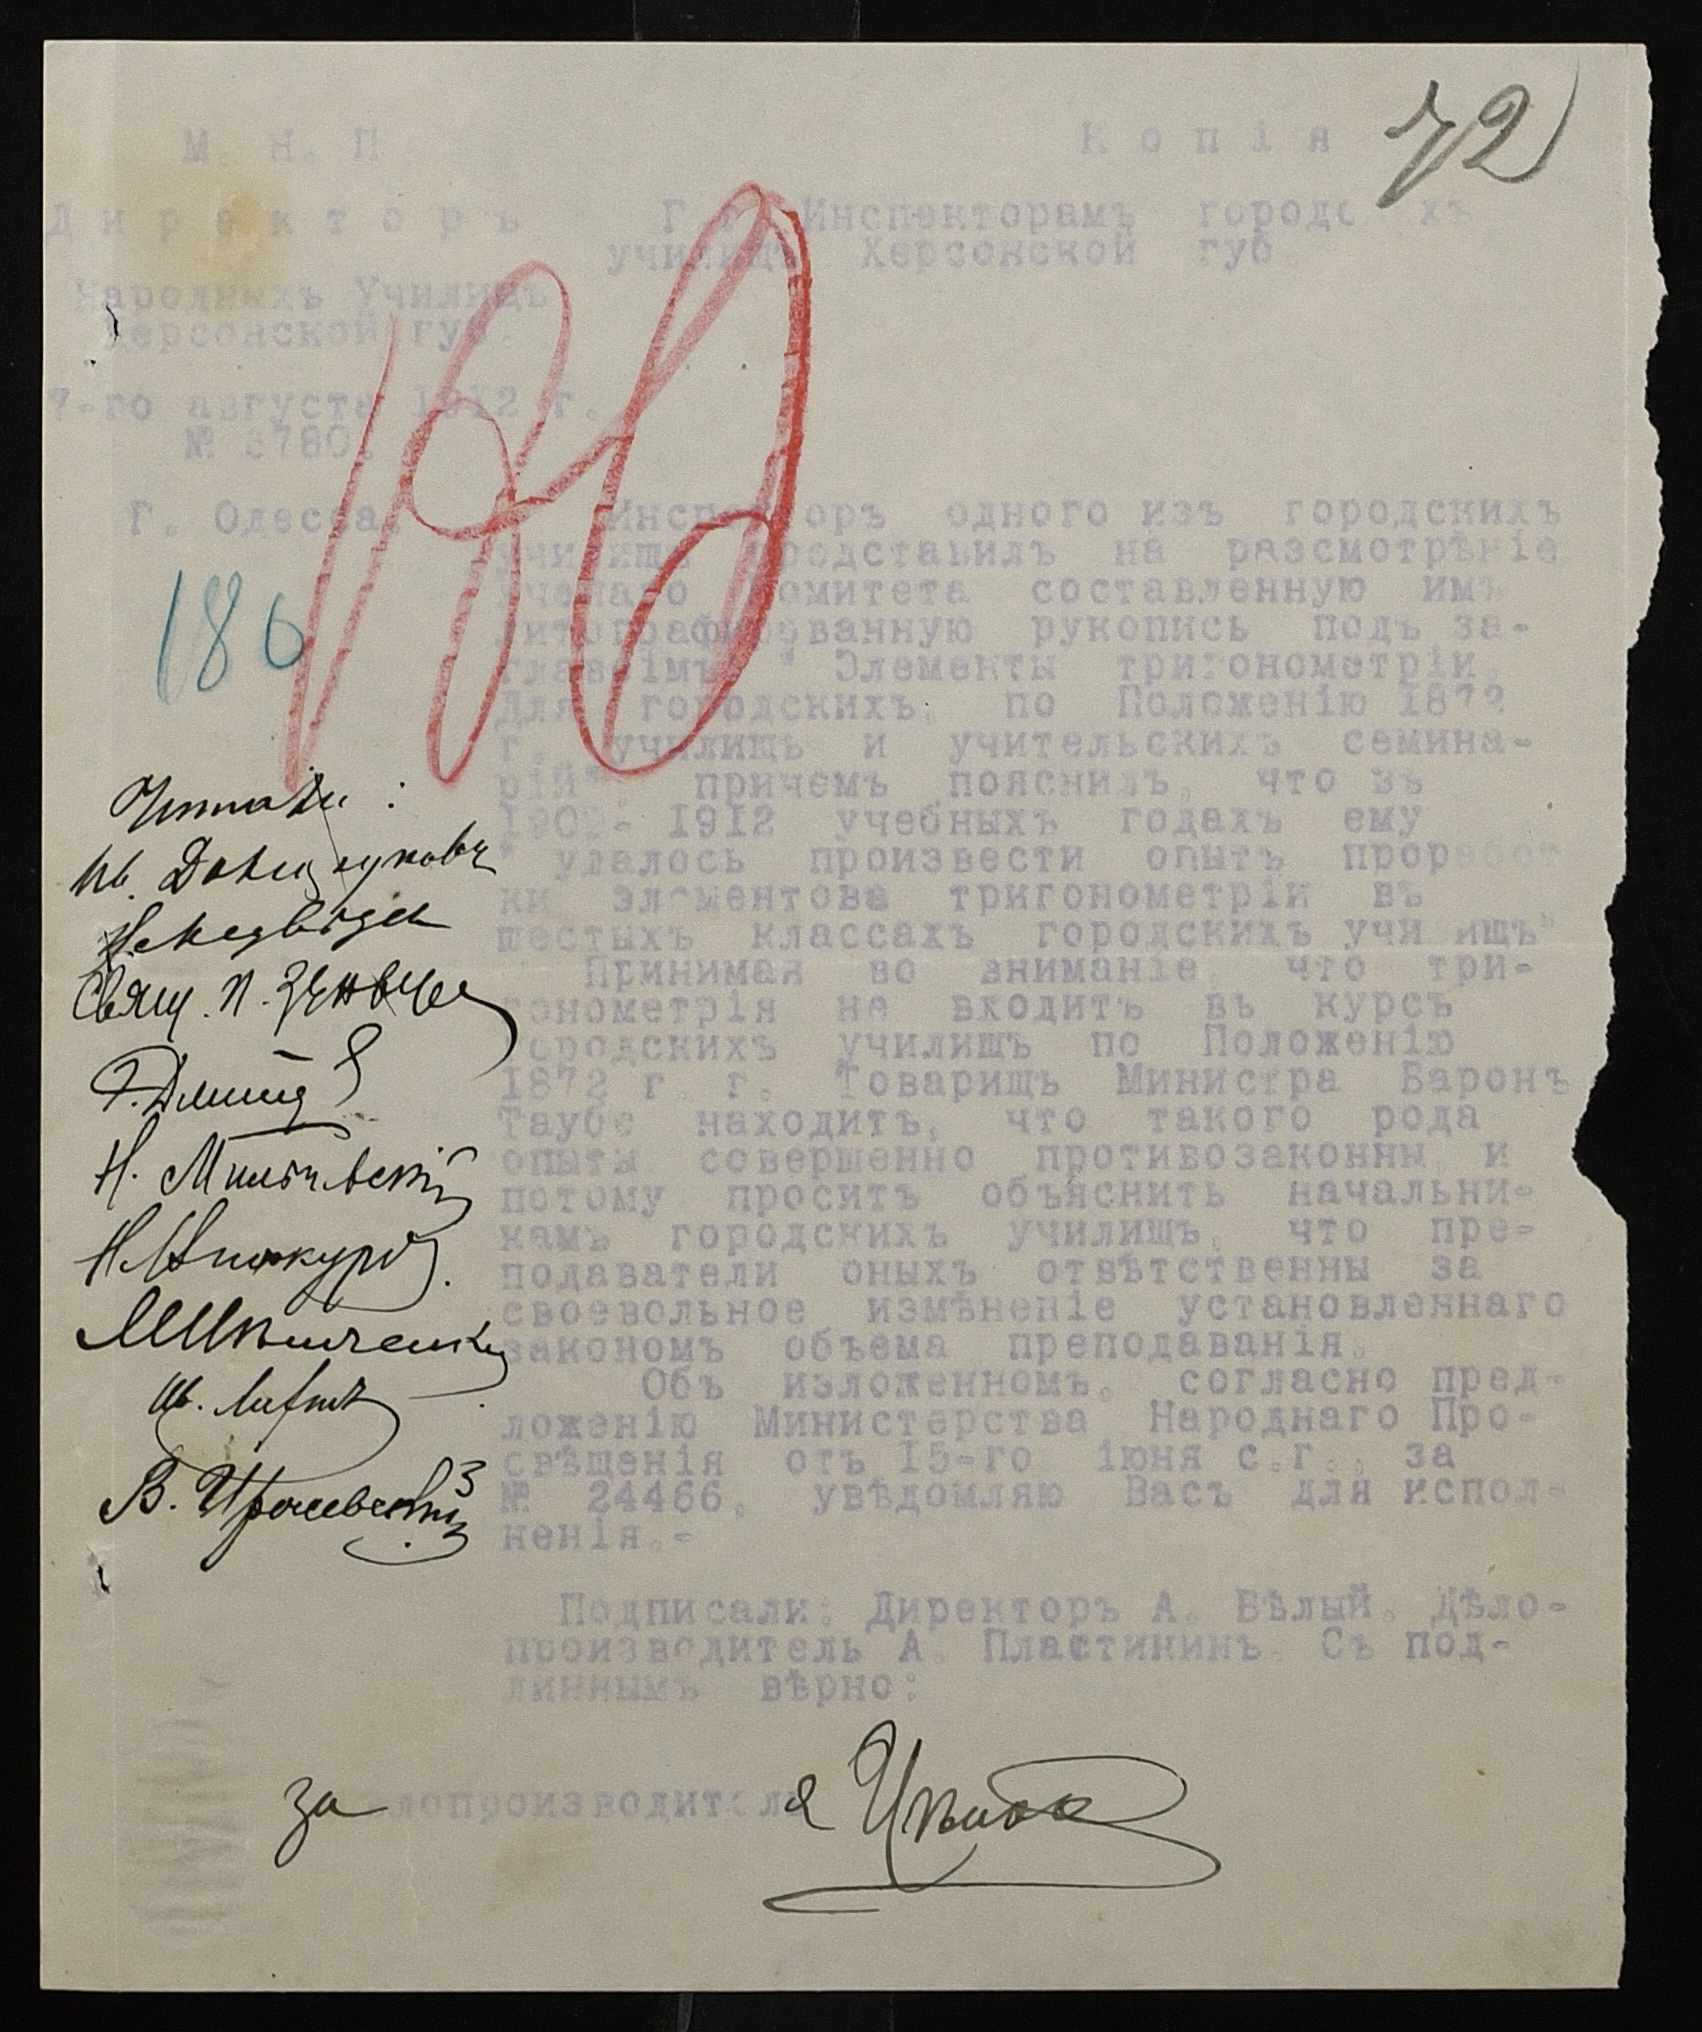 72
М. Н. П. Копія
Директоръ Г.г. Инспекторамъ городскихъ
училищъ Херсонской губ.
Народныхъ Училищъ
Херсонской губ.
7-го августа 1912 г.
180
Г. Одесса. Инспекторъ одного изъ городскихъ
училищъ представилъ на разсмотрѣніе
Ученаго Комитета составленную имъ
литографированную рукопись подъ за-
180
главіемъ " Элементы тригонометріи.
Для городскихъ, по Положенію 1872
г. училищъ и учительскихъ семина-
рій", причемъ пояснилъ, что въ
1912 учебныхъ годахъ ему
" удалось произвести опытъ проработ
ки элементовъ тригонометріи въ
шестыхъ классахъ городскихъ училищъ"
Принимая во вниманіе, что три-
гонометрія не входитъ въ курсъ
городскихъ училищъ по Положенію
1872 г. г. Товарищъ Министра Баронъ
Таубе находитъ, что такого рода
опыты совершенно противозаконны и
потому проситъ объяснить начальни-
камъ городскихъ училищъ, что пре-
подаватели оныхъ отвѣтственны за
своевольное измѣненіе установленнаго
закономъ объема преподаванія.
Объ изложенномъ, согласно пред-
ложенію Министерства Народнаго Про-
свѣщенія отъ 15-го іюня с.г., за
№ 24466, увѣдомляю Васъ для испол-
ненія.-
Читали:
Свящ. П.
Н.
В.
Подписали: Директоръ А. Бѣлый. Дѣло-
производитель А. Пластининъ. Съ под-
линнымъ вѣрно:
За дѣлопроизводителя